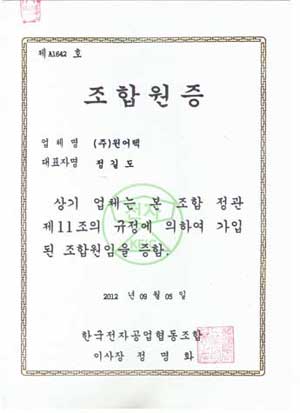 제 A1642 호
조합원증
업 체 명 (주)원어텍
대표자명 정 길 도
상기 업체는 본 조합 정관
제11조의 규정에 의하여 가입
된 조합원임을 증함.
전자
2012 년 09 월 05 일
한국전자공업협동조합
이사장 정 명 화